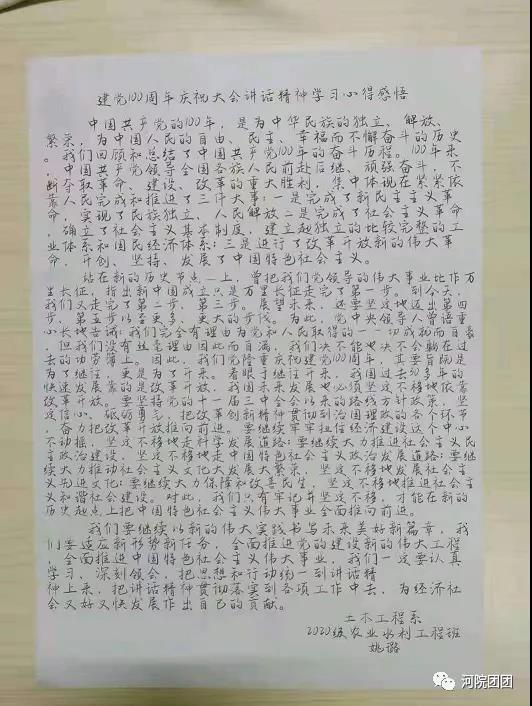 建党100周年庆祝大会讲话精神学习心得感悟
中国共产党的100年，是为中华民族的独立、解放、
繁荣，为中国人民的自由、民主、幸福而不懈奋斗的历史
。我们回顾和总结了中国共产党100年的奋斗历程。100年来，
中国共产党领导全国各族人民前赴后继、顽强奋斗，不
断夺取革命、建设、改革的重大胜利，集中体现在紧紧依
靠人民完成和推进了三件大事：一是完成了新民主主义革
命，实现了民族独立、人民解放；二是完成了社会主义革命
，确立了社会主义基本制度，建立起独立的比较完整的工
业体系和国民经济体系；三是进行了改革开放新的伟大革
命，开创、坚持、发展了中国特色社会主义。
站在新的历史节点上，曾把我们党领导的伟大事业比作万
里长征，指出新中国成立只是万里长征走完了第一步。到今天，
我们又走完了第二步，第三步。展望未来，还要坚定地迈出第四
步、第五步以至更多、更大的步伐。为此，党中央领导人曾语重
心长地告诫：我们完全有理由为党和人民取得的一切成就而自豪
，但我们没有丝毫理由因此而自满，我们决不能也决不会躺在过
去的功劳簿上。因此，我们党隆重庆祝建党100周年，其要旨既是
为了继往，更是为了开来。着眼于继往开来，我国过去30多年的
快速发展靠的是改革开放，我国未来发展也必须坚定不移地依靠
改革开放。要坚持党的十一届三中全会以来的路线方针政策，坚
定信心、砥砺勇气，把改革创新精神贯彻到治国理政的各个环节
，奋力把改革开放推向前进。要继续牢牢扭住经济建设这个中心
不动摇，坚定不移地走科学发展道路；要继续大力推进社会主义民
主政治建设，坚定不移地走中国特色社会主义政治发展道路；要继
续大力推动社会主义文化大发展大繁荣，坚定不移地发展社会主
义先进文化；要继续大力保障和改善民生，坚定不移地推进社会主
义和谐社会建设。对此，我们只有牢记并坚定不移，才能在新的
历史起点上把中国特色社会主义伟大事业全面推向前进。
我们要继续以新的伟大实践书写未来美好新篇章，我
们要适应新形势新任务，全面推进党的建设新的伟大工程
，全面推进中国特色社会主义伟大事业，我们一定要认真
学习、深刻领会，把思想和行动统一到讲话精
神上来，把讲话精神贯彻落实到各项工作中去，为经济社
会又好又快发展作出自己的贡献。
土木工程系
2020级农业水利工程班
姚璐
河院团团